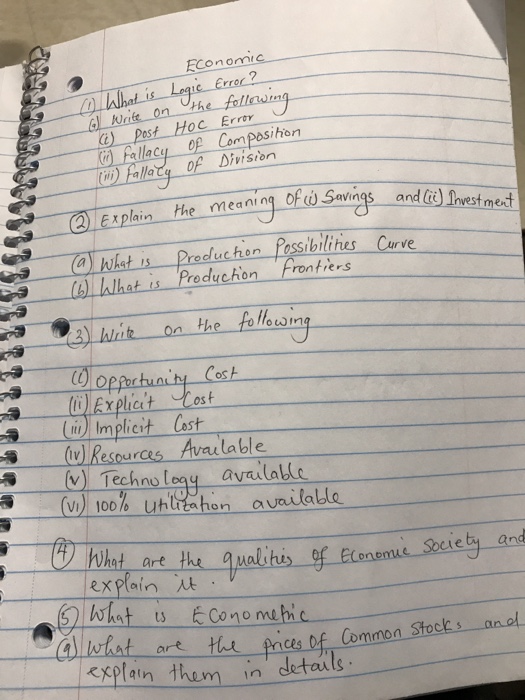 Economic
(1) What is Logic Error?
(a) Write on the following
(i) Post Hoc Error
(ii) Fallacy of Composition
(iii) Fallacy of Division
(2) Explain the meaning of (i) Savings and (ii) Investment
(a) What is Production Possibilities Curve
(b) What is Production Frontiers
(3) Write on the following
(i) Opportunity Cost
(ii) Explicit Cost
(iii) Implicit Cost
(iv) Resources Available
(v) Technology available
(vi) 100% utilization available
(4) What are the qualities of Economic Society and
explain it.
(5) What is Econometric
(a) What are the prices of Common Stocks and
explain them in details.